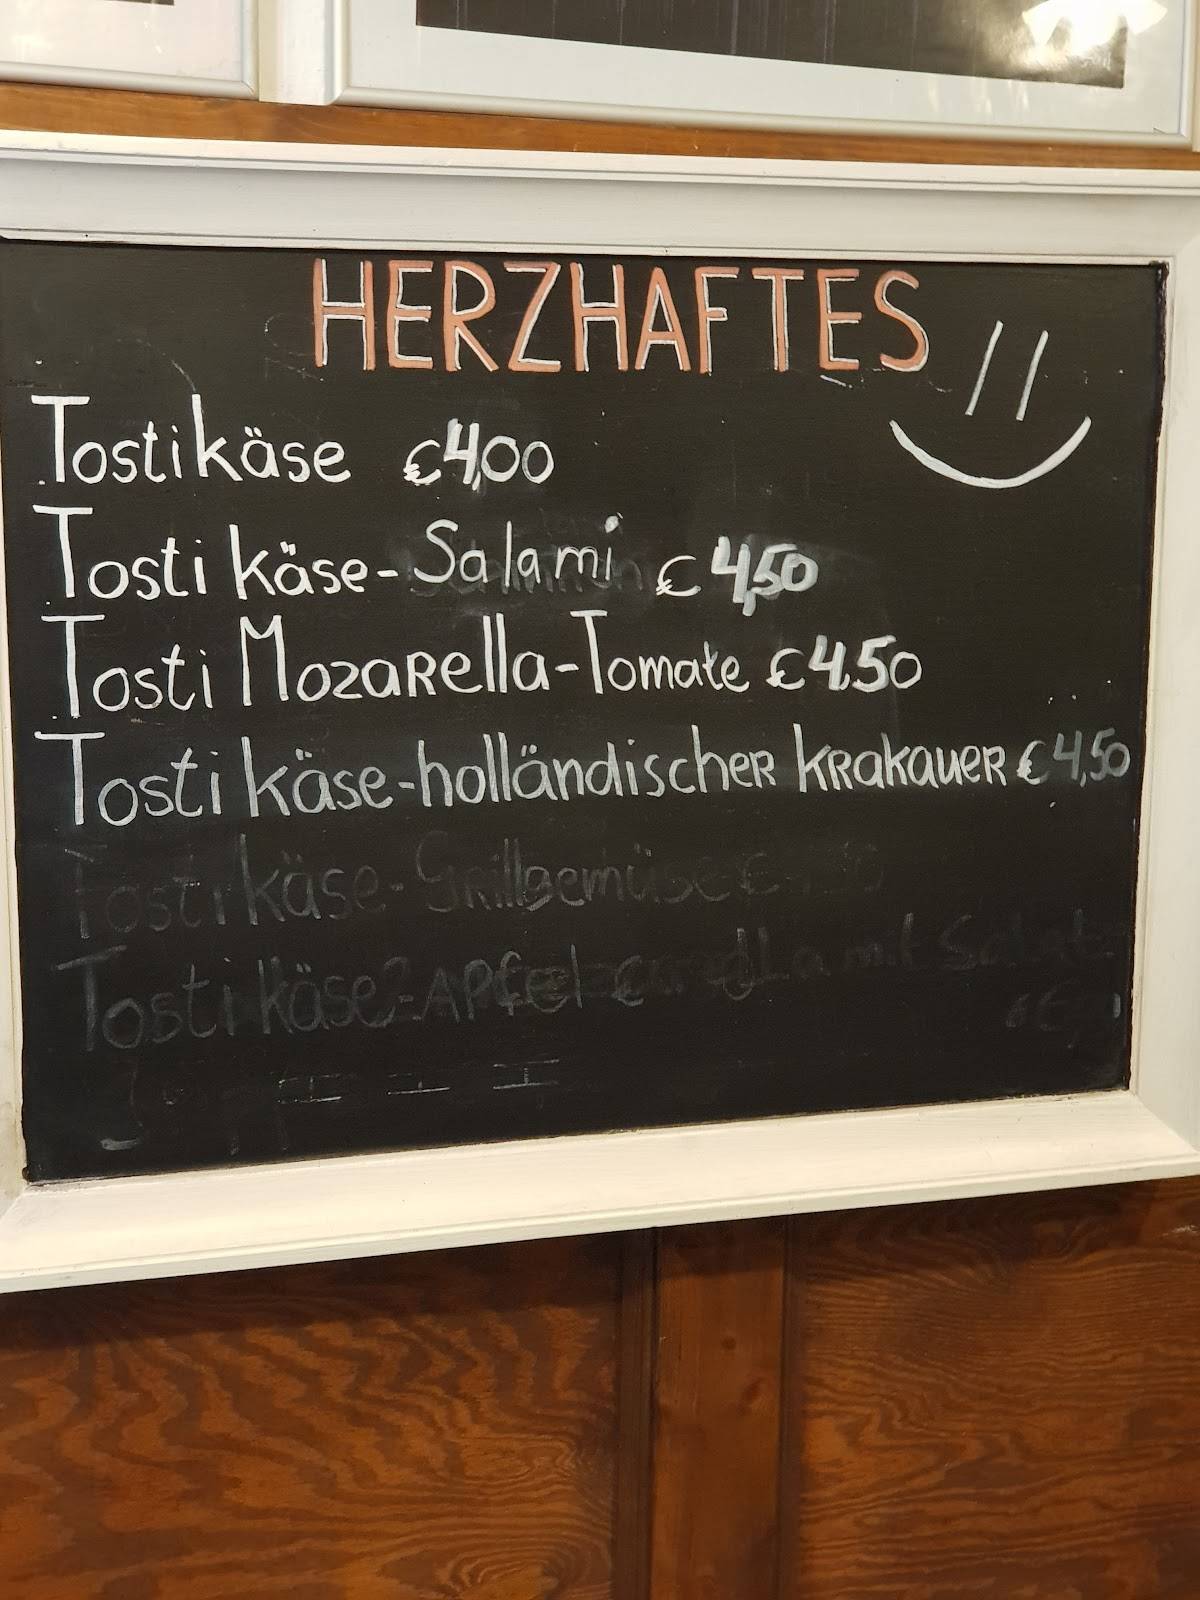 HERZHAFTES
Tostikäse €4,00
Tosti käse-Salami €4,50
Tosti Mozarella-Tomate €4.50
Tosti käse-holländischer krakauer €4,50
Tosti käse-Grillgemüse €
Tosti käse-APfel € mit Salat